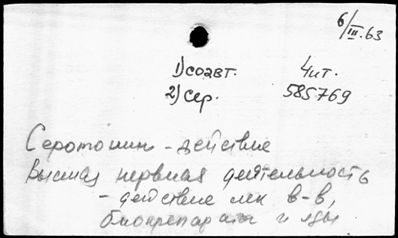 6/III.63
1) соавт. 4 ит.
2) сер. 585769
Серотонин - действие
Высшая нервная деятельность
- действие лек в-в,
биопрепараты и яды